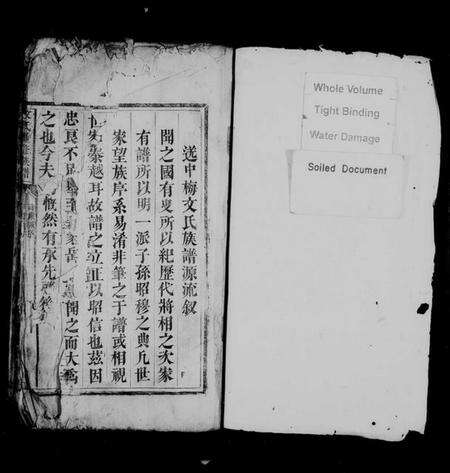 送中梅文氏族譜源流叙
聞之國有史所以紀歷代將相之次家
有譜所以明一派子孫昭穆之典凡世
家望族序系易淆非筆之于譜或相視
秦越耳故譜之立正以昭信也茲因
忠良不 聞之而大為
之也今夫 慨然有承先
Whole Volume
Tight Binding
Water Damage
Soiled Document